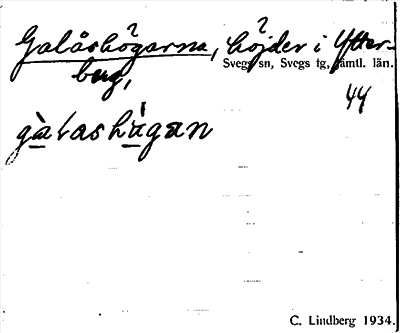 Galåshögarna, höjder i Ytter-
berg,
Svegs sn, Svegs tg, Jämtl. län.
44
gàlashágan
C. Lindberg 1934.